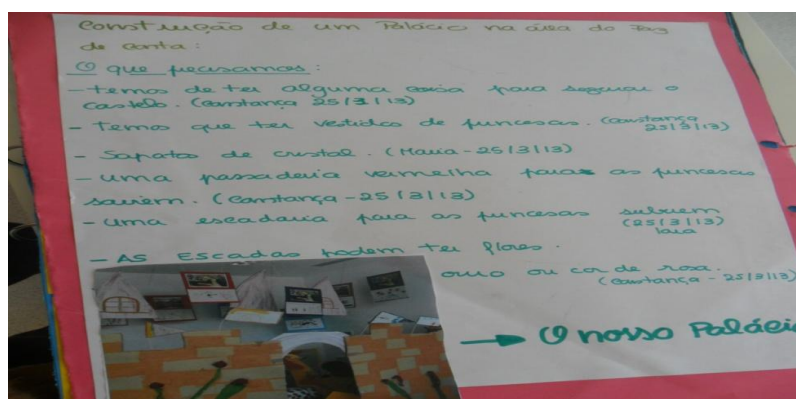 Construção de um Palácio na área do Faz
de conta:
O que precisamos:
- temos de ter alguma coisa para segurar o
castelo. (Constança 25/3/13)
- Temos que ter vestidos de princesas. (Constança
25/3/13)
- Sapatos de cristal. (Maria - 25/3/13)
- uma passadeira vermelha para as princesas
sairem. (Constança - 25/3/13)
- uma escadaria para as princesas subirem
(25/3/13)
Iara
- AS Escadas podem ter flores.
ouro ou cor de rosa.
(Constança - 25/3/13)
→ O nosso Paláci